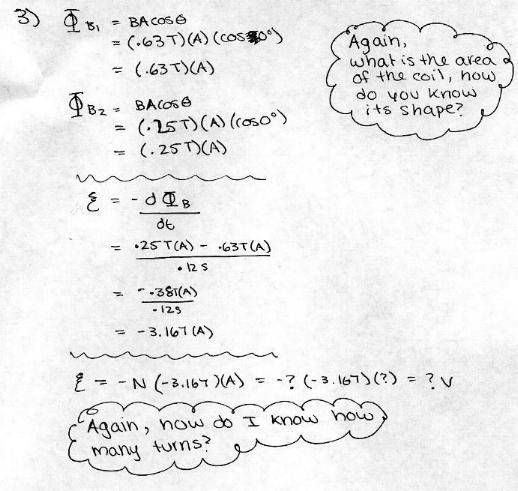 3) Φ B₁ = BAcosθ
= (.63T)(A)(cos 0°)
= (.63T)(A)
Again,
what is the area
of the coil, how
do you know
its shape?
Φ B2 = BACOSθ
= (.25T)(A)(cos0°)
= (.25T)(A)
ℰ = - d Φ B
dt
= .25T(A) - .63T(A)
.12s
= -.38T(A)
.12s
= -3.167(A)
ℰ = -N(-3.167)(A) = -?(-3.167)(?) = ? V
Again, how do I know how
many turns?